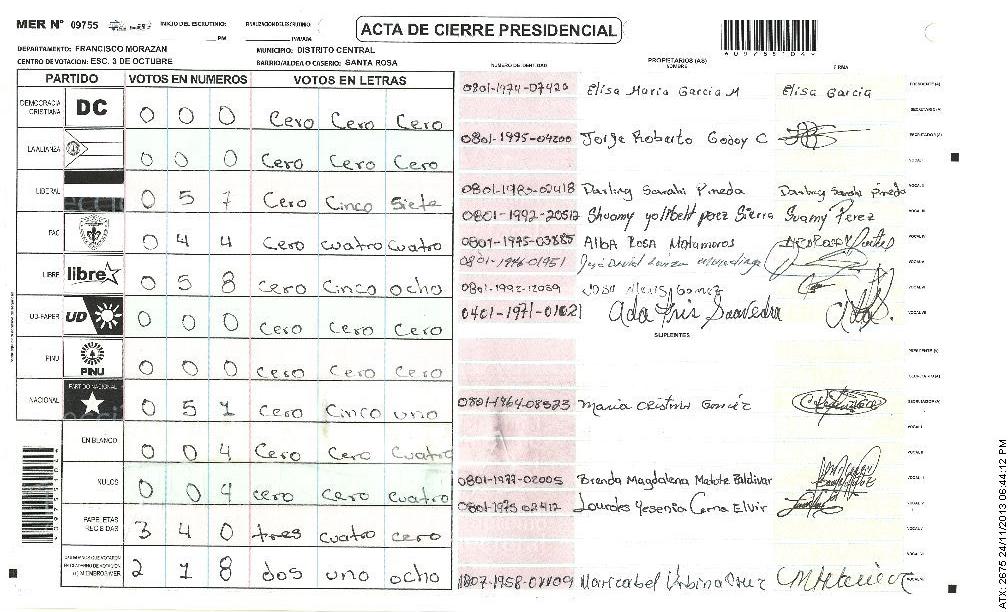 MER N° 09755 INICIO DEL ESCRUTINIO: FINALIZACION DEL ESCRUTINIO:
PM PM/AM
ACTA DE CIERRE PRESIDENCIAL
DEPARTAMENTO: FRANCISCO MORAZAN MUNICIPIO: DISTRITO CENTRAL
CENTRO DE VOTACION: ESC. 3 DE OCTUBRE BARRIO/ALDEA O CASERIO: SANTA ROSA
PARTIDO VOTOS EN NUMEROS VOTOS EN LETRAS
DEMOCRACIA CRISTIANA DC 0 0 0 Cero Cero Cero
LA ALIANZA 0 0 0 Cero Cero Cero
LIBERAL 0 5 7 Cero Cinco Siete
PAC 0 4 4 Cero cuatro cuatro
LIBRE libre 0 5 8 Cero Cinco ocho
UD-FAPER UD 0 0 0 Cero Cero Cero
PINU PINU 0 0 0 Cero Cero Cero
NACIONAL PARTIDO NACIONAL 0 5 1 Cero Cinco uno
EN BLANCO 0 0 4 Cero Cero Cuatro
NULOS 0 0 4 cero cero cuatro
PAPELETAS RECIBIDAS 3 4 0 tres cuatro cero
2 1 8 dos uno ocho
NUMERO DE IDENTIDAD PROPIETARIOS (AS) NOMBRE FIRMA
0801-1974-07420 Elisa Maria Garcia M Elisa Garcia PRESIDENTE (A)
SECRETARIO (A)
0801-1995-04200 Jorge Roberto Godoy C ESCRUTADOR (A)
VOCAL I
Darling Sarahi Pineda Darling Sarahi Pineda VOCAL II
0801-1992-20512 Perez VOCAL III
0801-1975-03885 Alba Rosa Matamoros
0801-1946-01951 José David
0801-1992-12039 Gomez
0401-1971-01021 Ada Iris Saavedra
SUPLENTES
PRESIDENTE (A)
SECRETARIO (A)
0801-1964-08523 Maria Cristina Gomez ESCRUTADOR (A)
VOCAL I
0801-1977-02005 Brenda Magdalena Matute
0801-1975-02412 Lourdes Yesenia Cerna Elvir
Maricabel Urbina Cruz
ATX: 2675 24/11/2013 06:44:12 PM